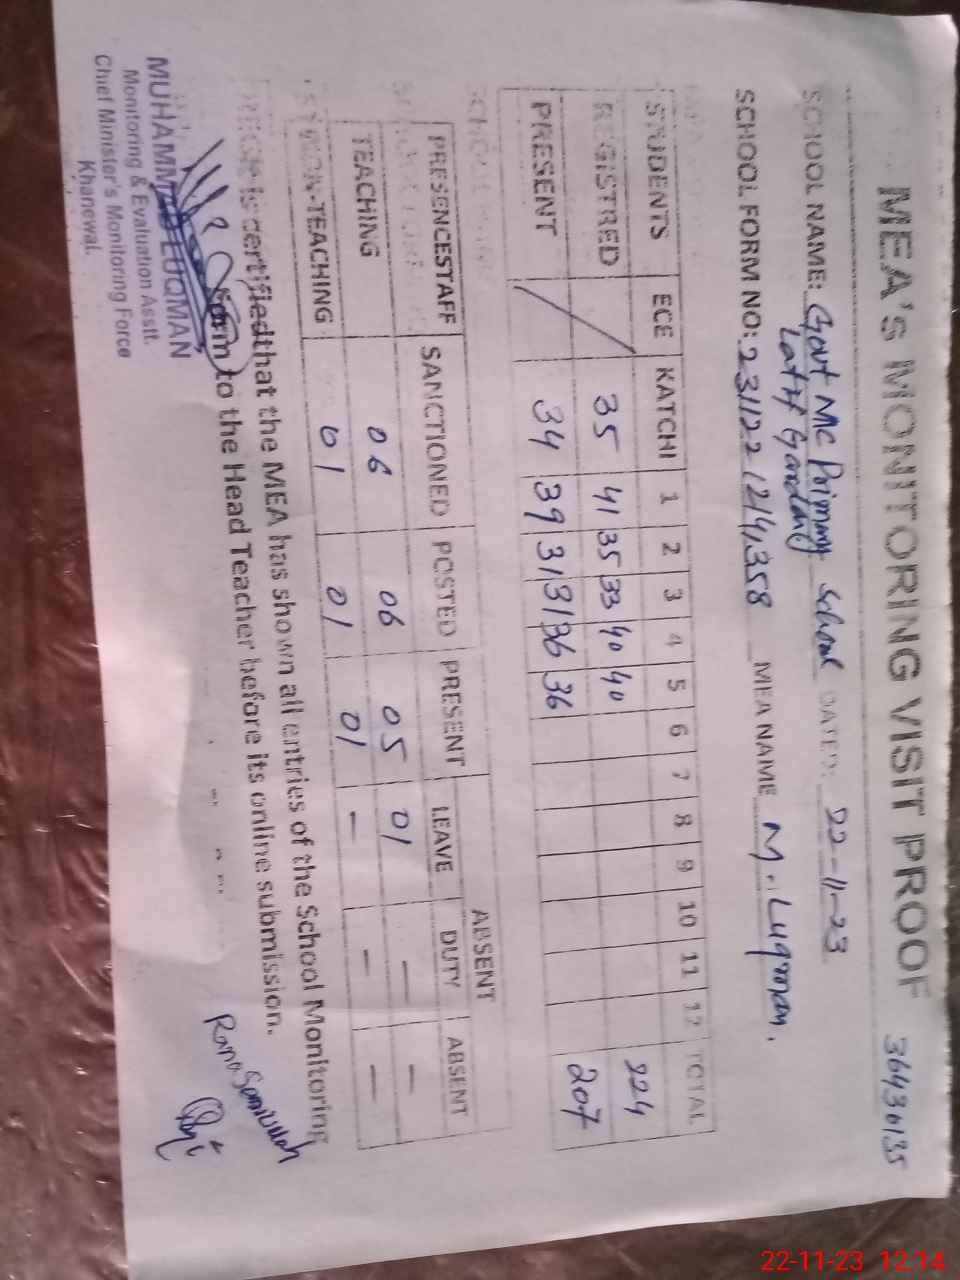 MEA'S MONITORING VISIT PROOF 36430135
SCHOOL NAME: Govt MC Primary School DATED: 22-11-23
SCHOOL FORM NO: MEA NAME M. Luqman.
STUDENTS ECE KATCHI 1 2 3 4 5 6 7 8 9 10 11 12 TOTAL
REGISTRED 35 41 35 33 40 40 224
PRESENT 34 39 31 31 36 36 207
ABSENT
PRESENCESTAFF SANCTIONED POSTED PRESENT LEAVE DUTY ABSENT
TEACHING 06 06 05 01 — —
NON-TEACHING 01 01 01 — — —
is certifiedthat the MEA has shown all entries of the School Monitoring
Form to the Head Teacher before its online submission.
MUHAMMAD LUQMAN
Monitoring & Evaluation Asstt.
Chief Minister's Monitoring Force
Khanewal.
Rana Samiullah
22-11-23 12:14